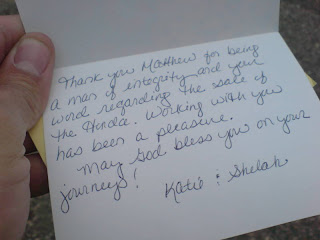 Thank you Matthew for being
a man of integrity and your
word regarding the sale of
the Honda. Working with you
has been a pleasure.
May God bless you on your
journeys!
Katie & Shelah